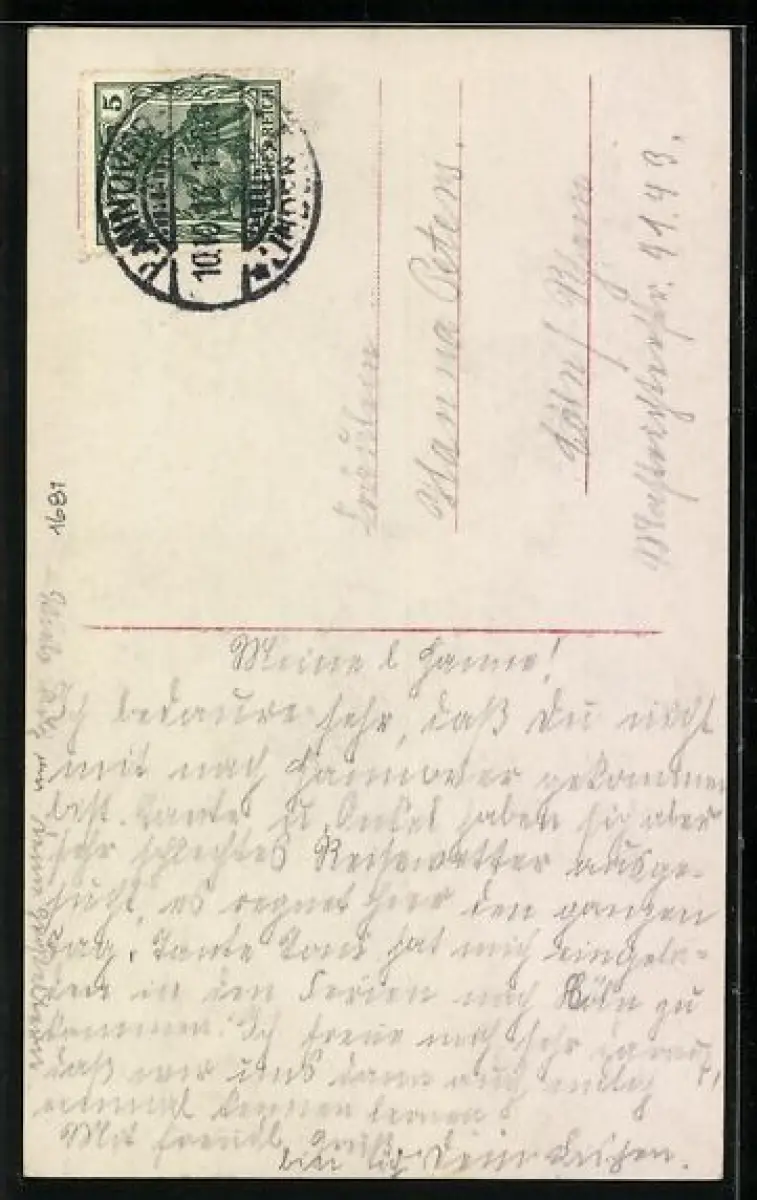 5
HANNOVER
10.10.12.1
LINDEN
Fräulein
Hanna Peters.
Cöln/Rhein
Mastrichterstr. 41.43.
1681
Meine l Hanna!
Ich bedaure sehr, daß Du nicht
mit nach Hannover gekommen
bist. Tante u. Onkel haben sich aber
sehr schlechtes Reisewetter ausge-
sucht, es regnet hier den ganzen
Tag. Tante Toni hat mich eingela-
den in den Ferien nach Köln zu
kommen. Ich freue mich sehr darauf,
daß wir uns dann auch endlich
einmal kennen lernen
Mit freudl. Gruß
bin ich Dein